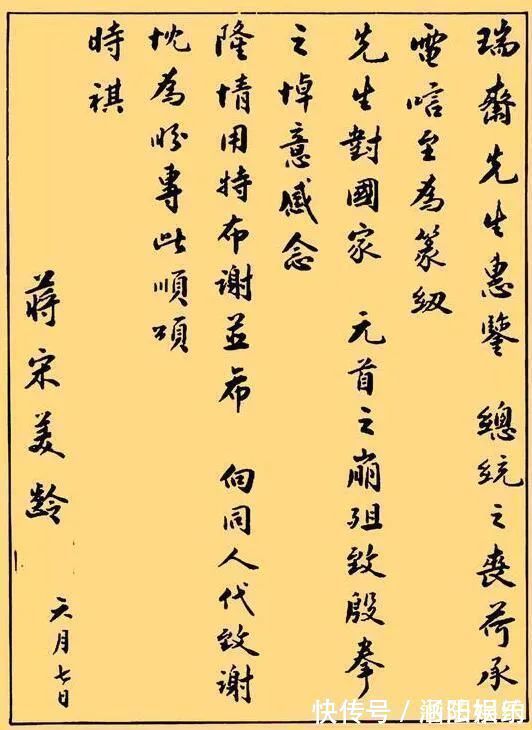 瑞齋先生惠鑒 總統之喪荷承
電唁至為篆紉
先生對國家 元首之崩殂致殷拳
之悼意感念
隆情用特布謝並希 向同人代致謝
忱為盼專此順頌
時祺
蔣宋美齡
六月七日
快传号 /